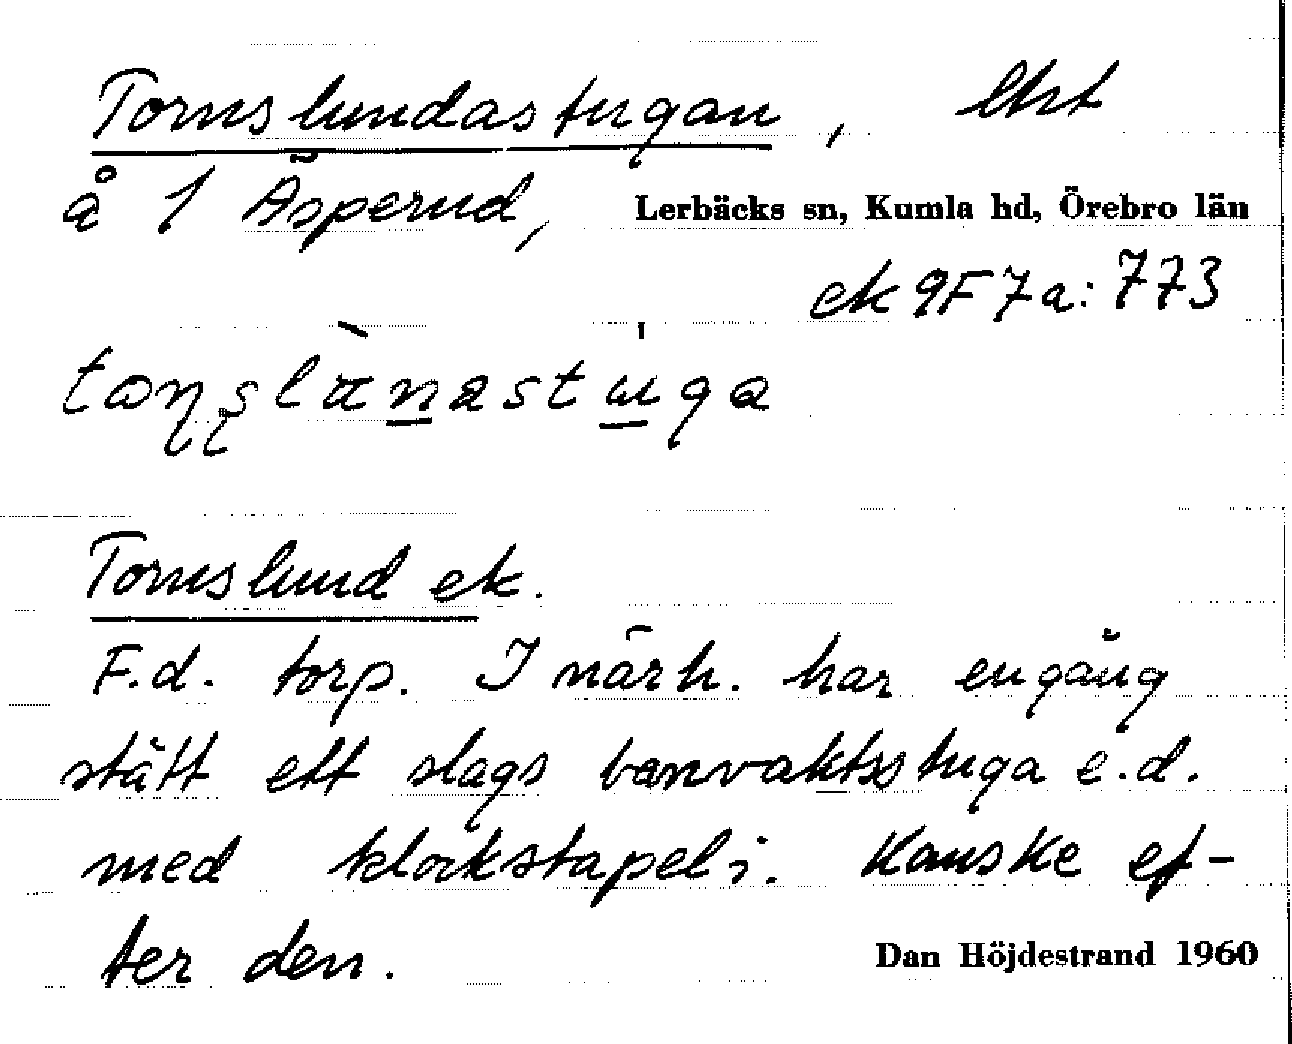 Tornslundastugan, lht
å 1 Åsperud, Lerbäcks sn, Kumla hd, Örebro län
ek 9F 7a: 773
Tornslund ek.
F.d. torp. I närh. har engång
stått ett slags banvaktsstuga e.d.
med klockstapel i. Kanske ef-
ter den.
Dan Höjdestrand 1960